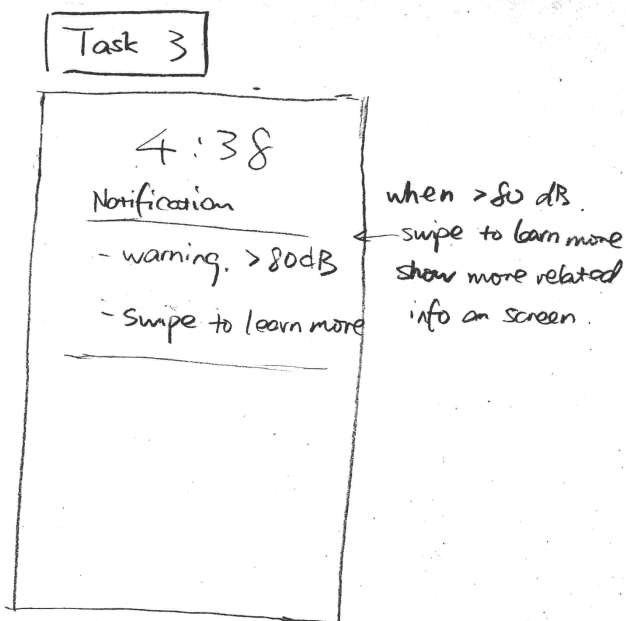 Task 3
4:38
Notification
- warning. >80dB
- Swipe to learn more
when >80 dB.
swipe to learn more
show more related
info on screen.